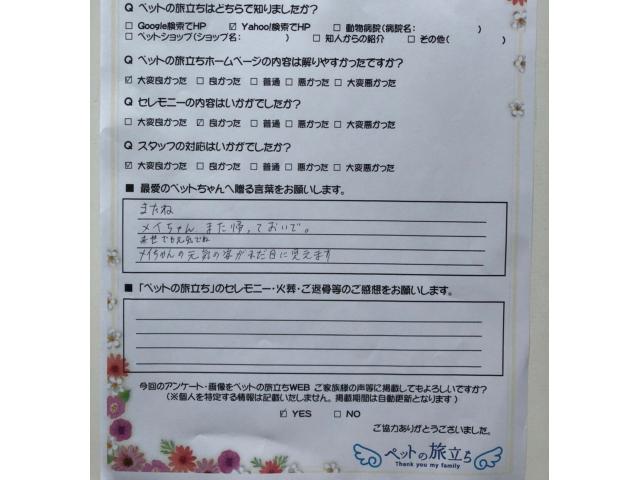 Q ペットの旅立ちはどちらで知りましたか?
□ Google検索でHP ☑ Yahoo!検索でHP □ 動物病院(病院名: )
□ ペットショップ(ショップ名: ) □ 知人からの紹介 □ その他( )
Q ペットの旅立ちホームページの内容は解りやすかったですか?
☑ 大変良かった □ 良かった □ 普通 □ 悪かった □ 大変悪かった
Q セレモニーの内容はいかがでしたか?
□ 大変良かった ☑ 良かった □ 普通 □ 悪かった □ 大変悪かった
Q スタッフの対応はいかがでしたか?
☑ 大変良かった □ 良かった □ 普通 □ 悪かった □ 大変悪かった
■ 最愛のペットちゃんへ贈る言葉をお願いします。
またね
メイちゃん また帰っておいで。
来世でも元気でね
メイちゃんの元気の姿がまだ目に見えます
■ 「ペットの旅立ち」のセレモニー・火葬・ご返骨等のご感想をお願いします。
今回のアンケート・画像をペットの旅立ちWEB ご家族様の声等に掲載してもよろしいですか?
(※個人を特定する情報は記載いたしません。掲載期間は自動更新となります)
☑ YES □ NO
ご協力ありがとうございました。
ペットの旅立ち
Thank you my family